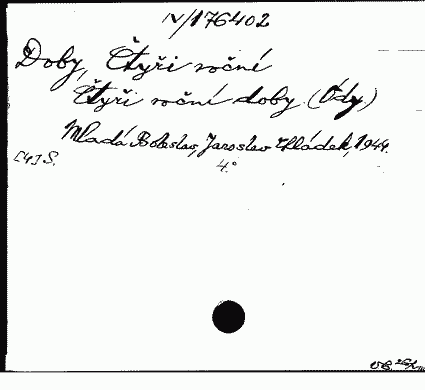 N/176402
Doby, Čtyři roční
Čtyři roční doby. (Ódy.)
Mladá Boleslav, Jaroslav Hládek, 1944.
[4] S. 4.°